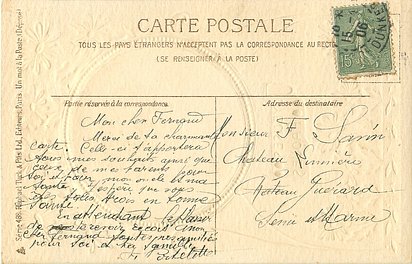 CARTE POSTALE
TOUS LES PAYS ÉTRANGERS N'ACCEPTENT PAS LA CORRESPONDANCE AU RECTO
(SE RENSEIGNER À LA POSTE)
Partie réservée à la correspondance.
Adresse du destinataire
Mon cher Fernand
Merci de ta charmante
carte. Celle-ci t'apportera
tous mes souhaits ainsi que
ceux de mes parents pour
toi et pour mon oncle et ma
tante. J'espère que vous
êtes tous trois en bonne
santé
en attendant le plaisir
de te revoir
cher Fernand
pour toi et ta famille
Monsieur F
Château
Château Guérard
Seine et Marne
Série 436. Raphael Tuck & Fils, Ltd, Editeurs, Paris. Un mot à la Poste (Déposé)
15